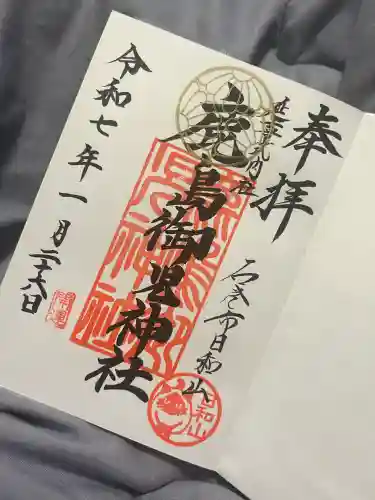 奉拝
延喜式内社
石巻市日和山
鹿島御児神社
鹿島御児神社
令和七年一月二十六日
日和山